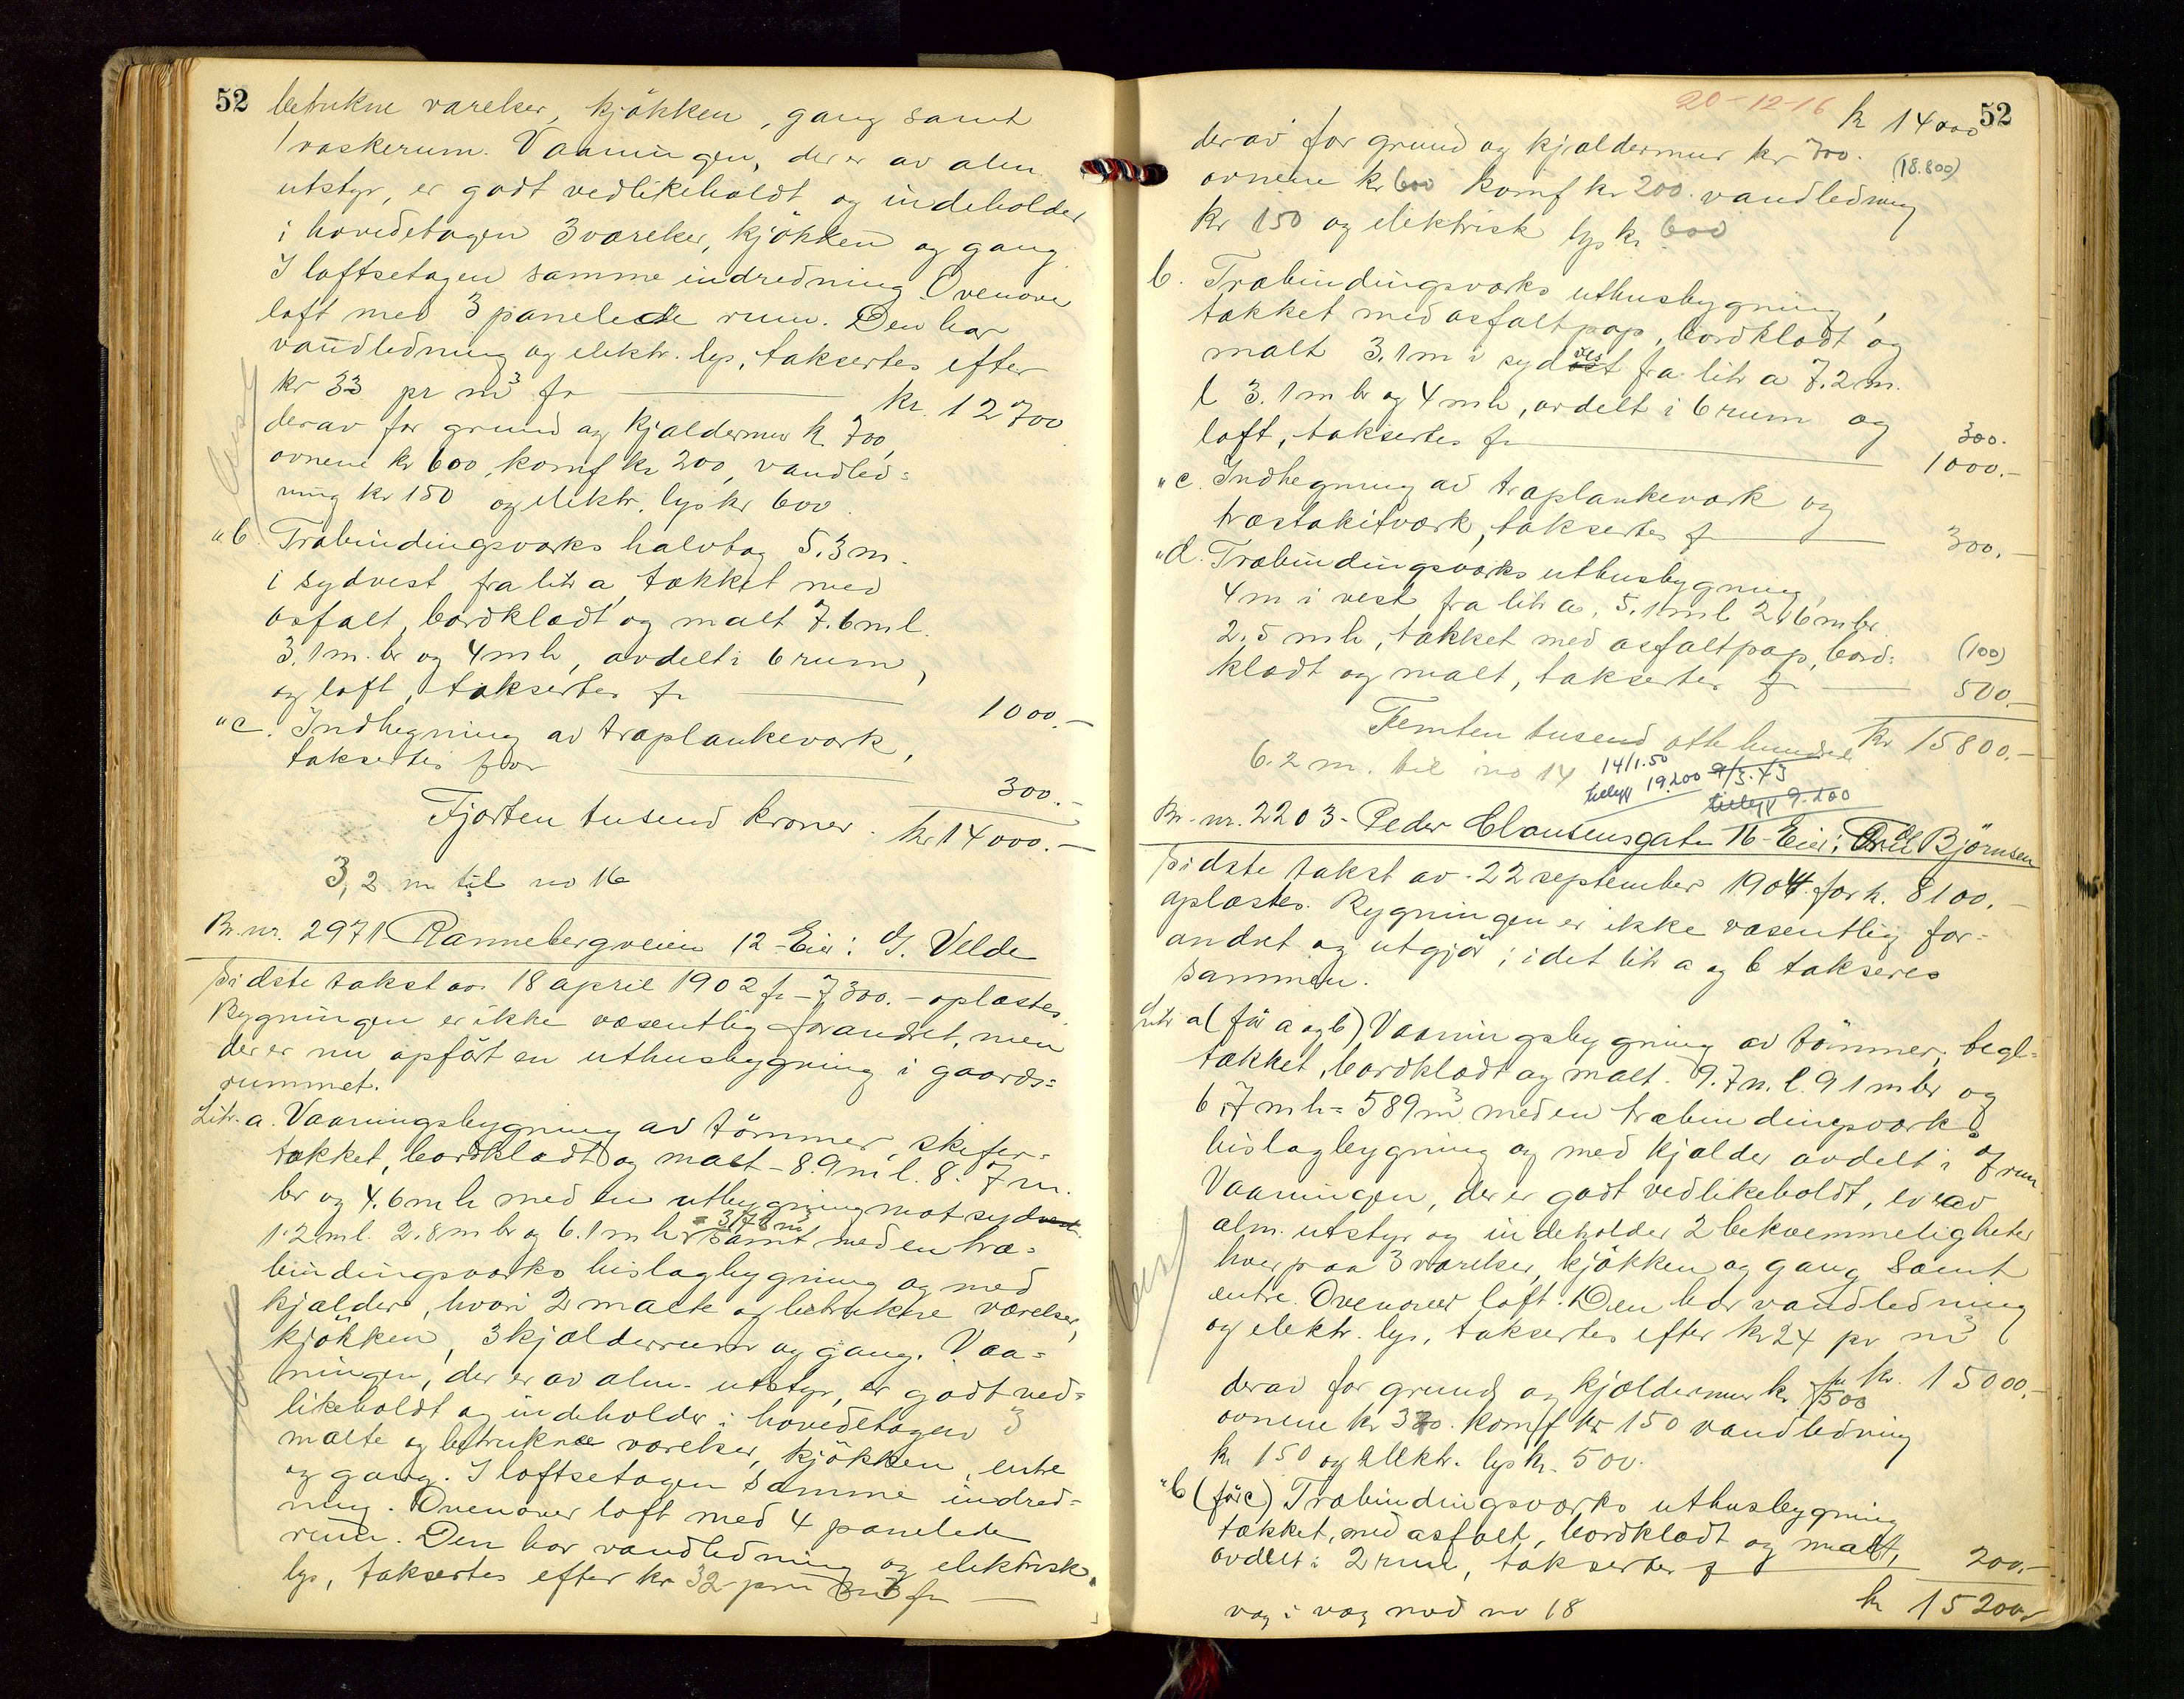 52
betrukne værelser, kjøkken, gang samt
1 vaskerum. Vaaningen, der er av alm.
utstyr, er godt vedlikeholdt og indeholder
i hovedetagen 3 værelser, kjøkken og gang.
I loftsetagen samme indredning. Ovenover
loft med 3 panelede rum. Den har
vandledning og elektr. lys, taksertes efter
kr 33 pr m³ for kr. 12700
derav for grund og kjældermur kr 700,
ovnene kr 600, komf kr 200, vandled=
ning kr 150 og elektr. lys kr 600.
"b. Træbindingsværks halvtag 5.3 m.
i sydvest fra litr a, tækket med
asfalt, bordklædt og malt 7.6 m l.
3.1 m. br og 4 m h, avdelt i 6 rum,
og loft, taksertes for 1000.-
"c. Indhegning av træplankeværk,
taksertes for 300.-
Fjorten tusend kroner. kr 14000.-
3,2 m til no 16
Br. nr. 2971 Rannebergveien 12 - Eier: G. Velde
Sidste takst av 18 april 1902 for 7300.- oplæstes.
Bygningen er ikke væsentlig forandret, men
der er nu opført en uthusbygning i gaards=
rummet.
Litr. a. Vaaningsbygning av tømmer skifer=
tækket, bordklædt og malt - 8.9 m l. 8.7 m.
br og 4.6 m h med en utbygning mot syd
1.2 m l. 2.8 m br og 6.1 m h = 378 m³ samt med en træ=
bindingsværks bislagbygning og med
kjælder, hvori 2 malte og betrukne værelser,
kjøkken, 3 kjælderrum og gang. Vaa=
ningen, der er av alm. utstyr, er godt ved=
likeholdt og indeholder i hovedetagen 3
malte og betrukne værelser, kjøkken, entre
og gang. I loftsetagen samme indred=
ning. Ovenover loft med 4 panelede
rum. Den har vandledning og elektrisk
lys, taksertes efter kr 32 pr m³ for
20-12-16 kr 14000 52
derav for grund og kjældermur kr 700. (18.800)
ovnene kr 600 komf kr 200. vandledning
kr 150 og elektrisk lys kr 600
b. Træbindingsværks uthusbygning,
tækket med asfaltpap, bordklædt og
malt 3.1 m i sydvest fra litr a 7.2 m.
l 3.1 m br og 4 m h, avdelt i 6 rum og
loft, taksertes for 300. 1000.-
"c. Indhegning av træplankeværk og
træstakitværk, taksertes for 300.-
"d. Træbindingsværks uthusbygning,
4 m i vest fra litr a, 5.1 m l 2.6 m br
2.5 m h, tækket med asfaltpap, bord= (100)
klædt og malt, taksertes for 500.-
Femten tusend otte hundrede kr 15800.-
6.2 m. til no 14 14/1.50 9/3.43
tillegg 19.200 tillegg 9.200
Br. nr. 2203 - Peder Clausensgate 16 - Eier: Bjørnsen
Sidste takst av 22 september 1904 for kr. 8100.-
oplæstes. Bygningen er ikke væsentlig for=
andret og utgjør; idet litr a og b takseres
sammen.
Litr a (før a og b) Vaaningsbygning av tømmer, tegl=
tækket, bordklædt og malt. 9.7 m. l. 9.1 m br og
6.7 m h = 589 m³ med en træbindingsværks
bislagbygning og med kjælder avdelt i 7 rum
Vaaningen, der er godt vedlikeholdt, er av
alm. utstyr og indeholder 2 bekvemmeligheter
hver paa 3 værelser, kjøkken og gang samt
entre. Ovenover loft. Den har vandledning
og elektr. lys, taksertes efter kr 24 pr m³
for kr. 15000.-
derav for grund og kjældermur kr 500
ovnene kr 320. komf kr 150 vandledning
kr 150 og elektr. lys kr. 500.
"b (før c) Træbindingsværks uthusbygning
tækket med asfalt, bordklædt og malt,
avdelt i 2 rum, taksertes for 200.-
væg i væg med no 18 kr 15200.-